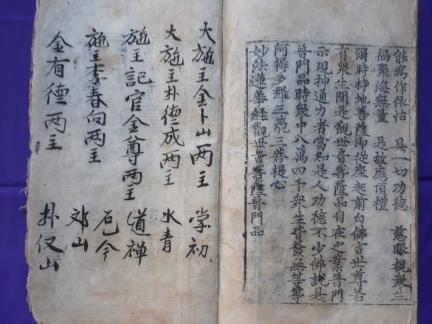 能爲作依怙　具一切功德　慈眼視衆生
福聚海無量　是故應頂禮
爾時持地菩薩即從座起前白佛言世尊若
有衆生聞是觀世音菩薩品自在之業普門
示現神通力者當知是人功德不少佛說是
普門品時衆中八萬四千衆生皆發無等等
阿耨多羅三藐三菩提心
妙法蓮華經觀世音菩薩普門品
大施主金卜山兩主
大施主朴德成兩主　水青
施主記官金尊兩主　道禪
施主李春向兩主
金有德兩主